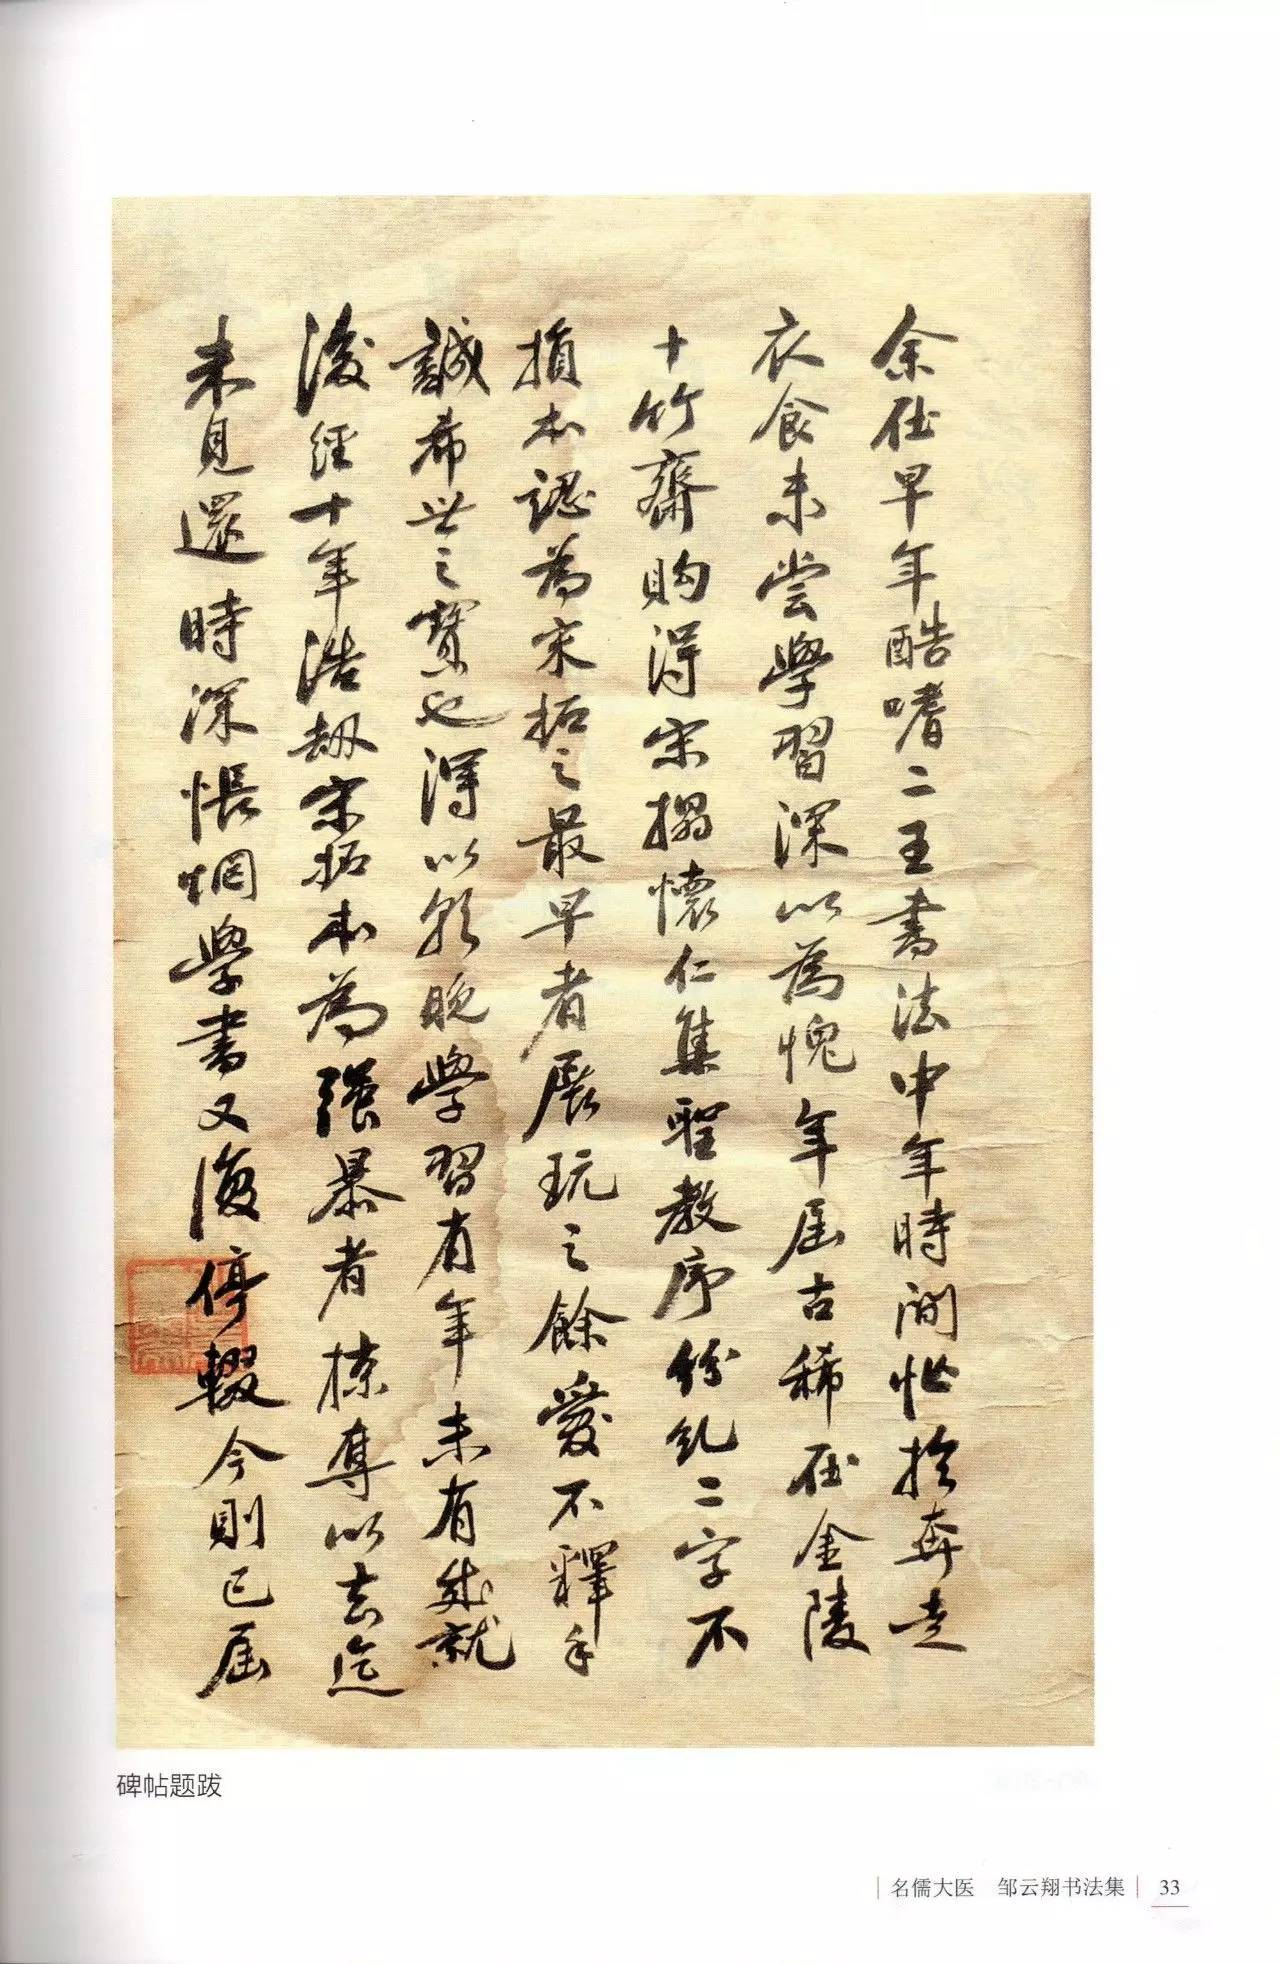 余在早年酷嗜二王書法中年時間忙於奔走
衣食未嘗學習深以為愧年屆古稀在金陵
十竹齋购得宋搨懷仁集聖教序份糺二字不
損本認為宋拓之最早者展玩之餘愛不釋手
誠希世之寶也得以說晚學習有年未有成就
後經十年浩劫宋拓本為強暴者掠奪以去迄
未見還時深悵惘學書又復停輟今則已屆
碑帖题跋
名儒大医 邹云翔书法集 33